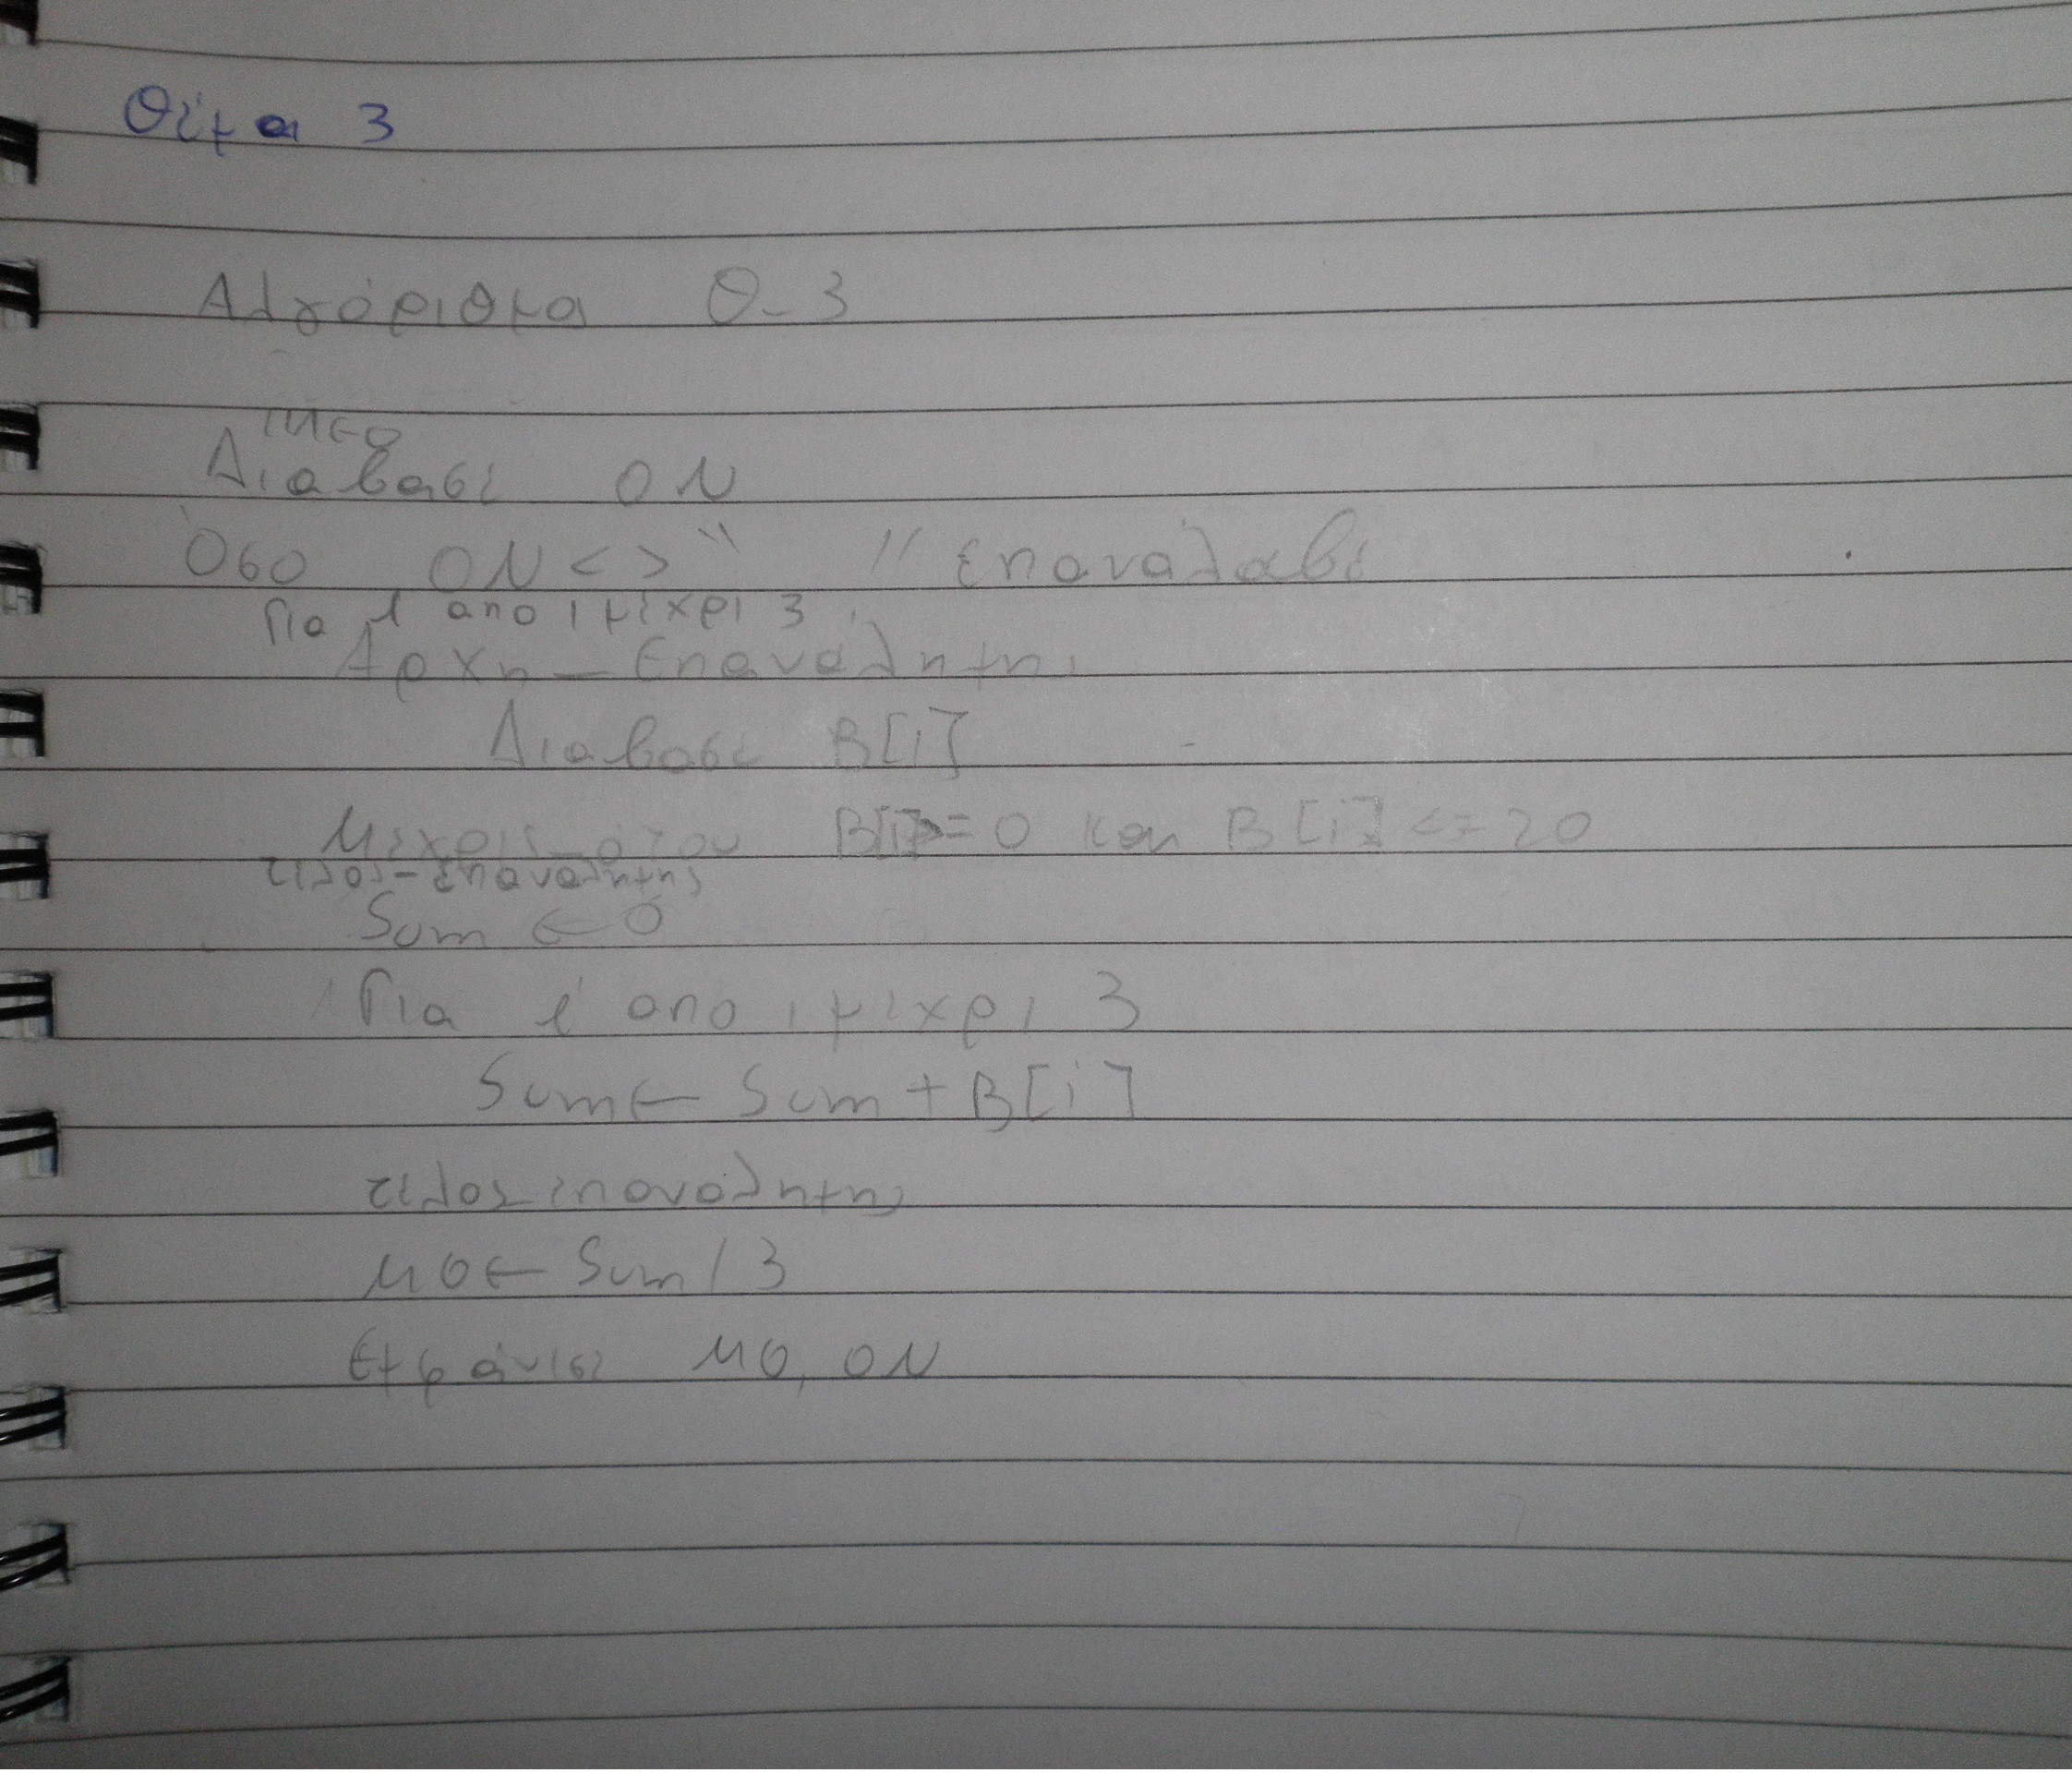 Θέμα 3
Αλγόριθμα Θ-3
π←0
Διαβασε ΟΝ
Όσο ΟΝ <> " " επαναλαβε
Για i απο 1 μέχρι 3
Αρχη_Επανάληψης
Διαβασε Β[i]
Μέχρις_ότου Β[i]>=0 και Β[i]<=20
τέλος-επαναληψης
Sum ← 0
Για i απο 1 μέχρι 3
Sum← Sum + Β[i]
τελος_επανάληψης
ΜΟ← Sum / 3
Εμφάνισε ΜΟ, ΟΝ